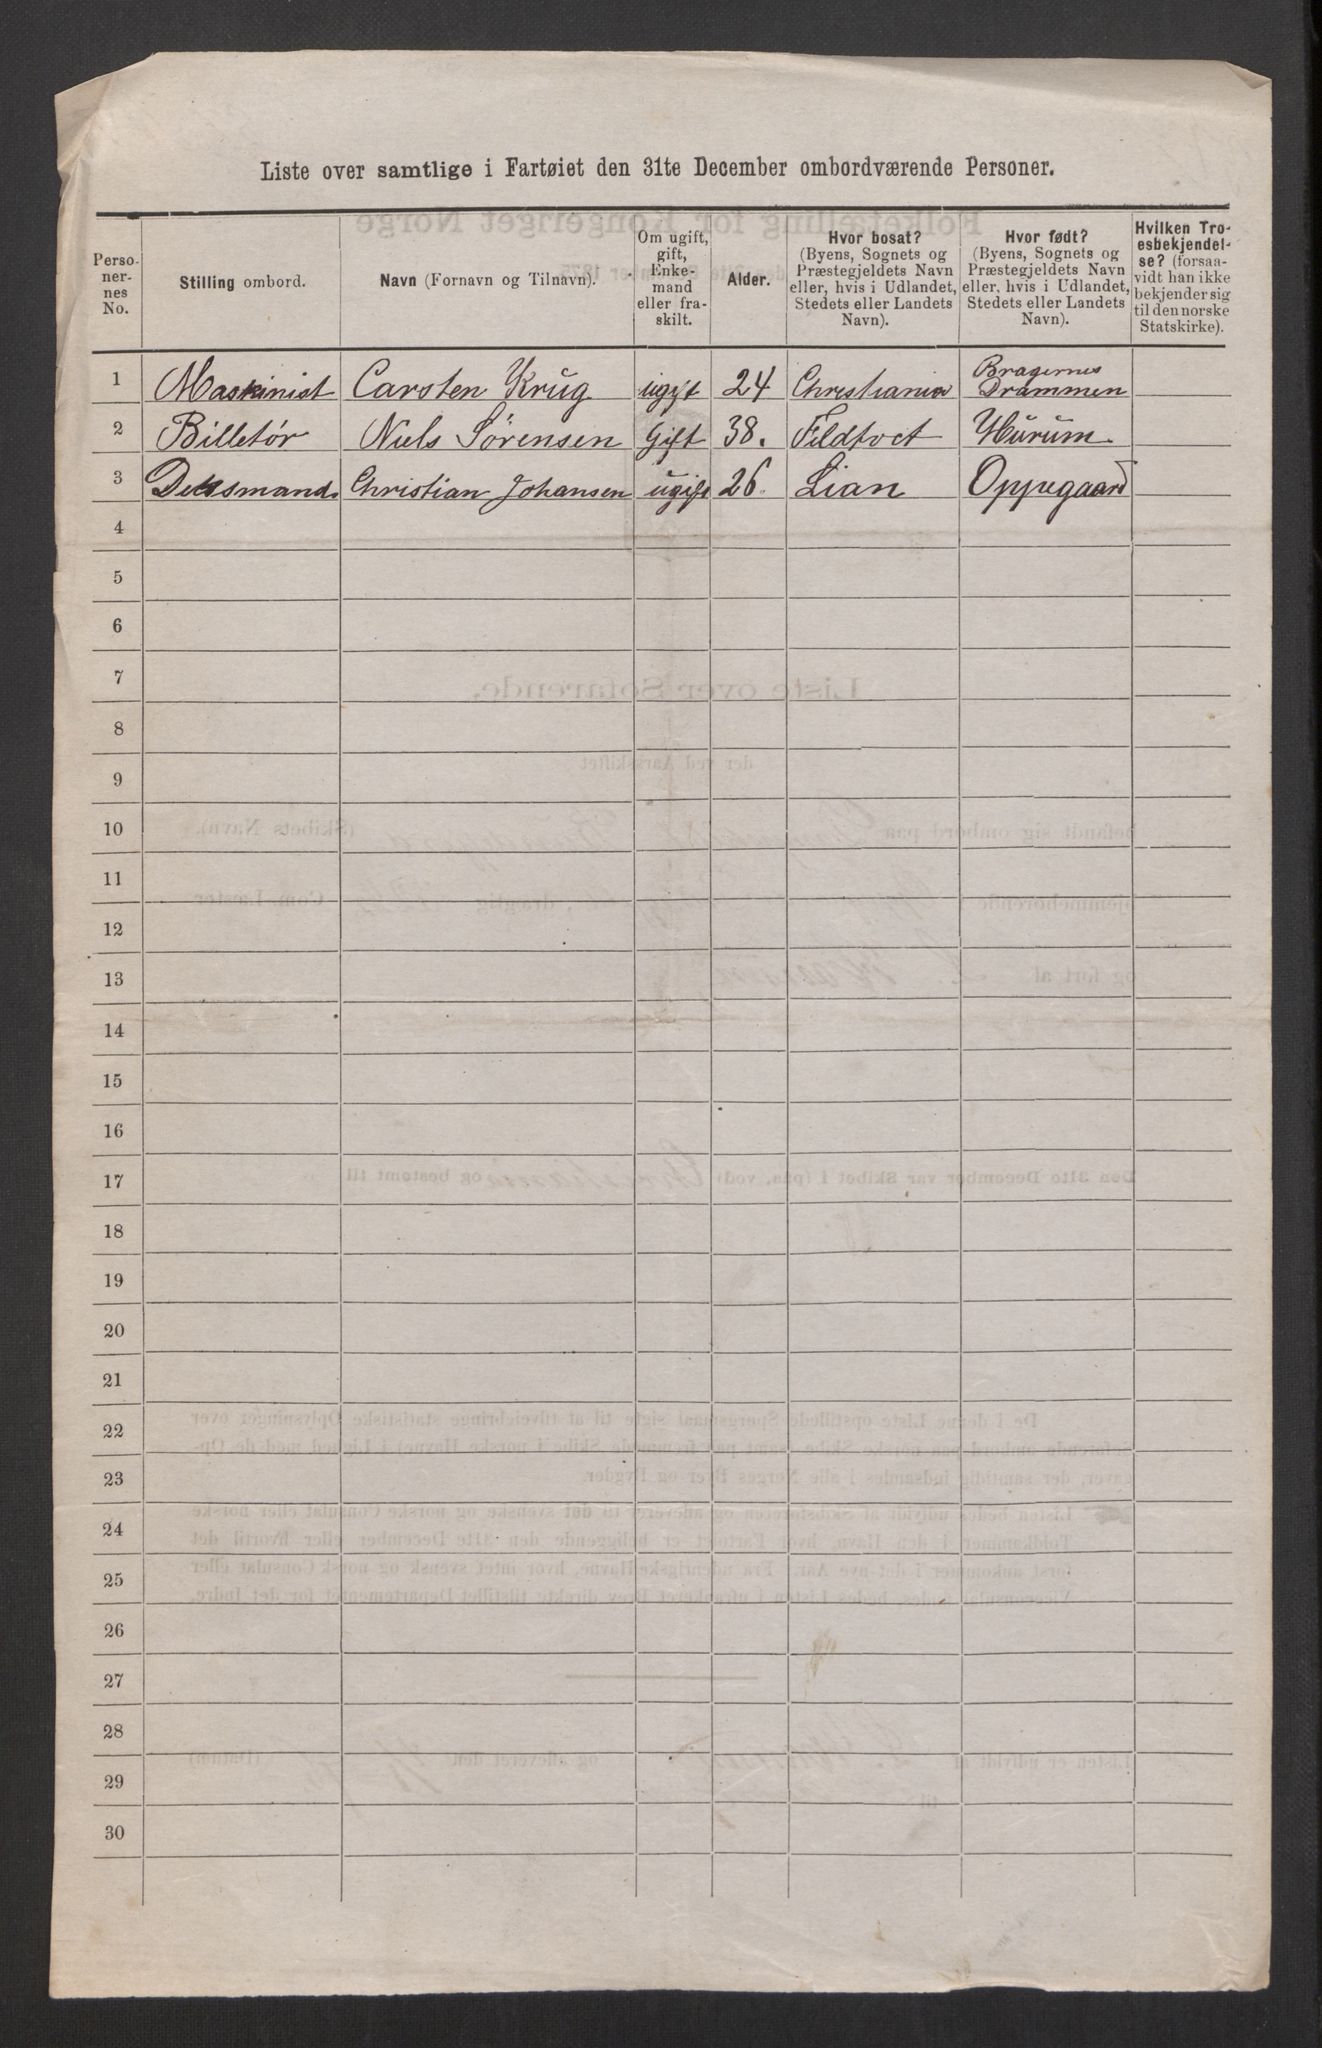 Liste over samtlige i Fartøiet den 31te December ombordværende Personer.
Personernes No. | Stilling ombord. | Navn (Fornavn og Tilnavn). | Om ugift, gift, Enkemand eller fraskilt. | Alder. | Hvor bosat? (Byens, Sognets og Præstegjeldets Navn eller, hvis i Udlandet, Stedets eller Landets Navn). | Hvor født? (Byens, Sognets og Præstegjeldets Navn eller, hvis i Udlandet, Stedets eller Landets Navn). | Hvilken Troesbekjendelse? (forsaavidt han ikke bekjender sig til den norske Statskirke).
1 Maskinist Carsten Krug ugift 24 Christiania Bragernes Drammen
2 Billetør Niels Sørensen Gift 38. Fildtvet Hurum
3 Deksmand. Christian Johansen ugift 26. Lian Oppegaard
4
5
6
7
8
9
10
11
12
13
14
15
16
17
18
19
20
21
22
23
24
25
26
27
28
29
30